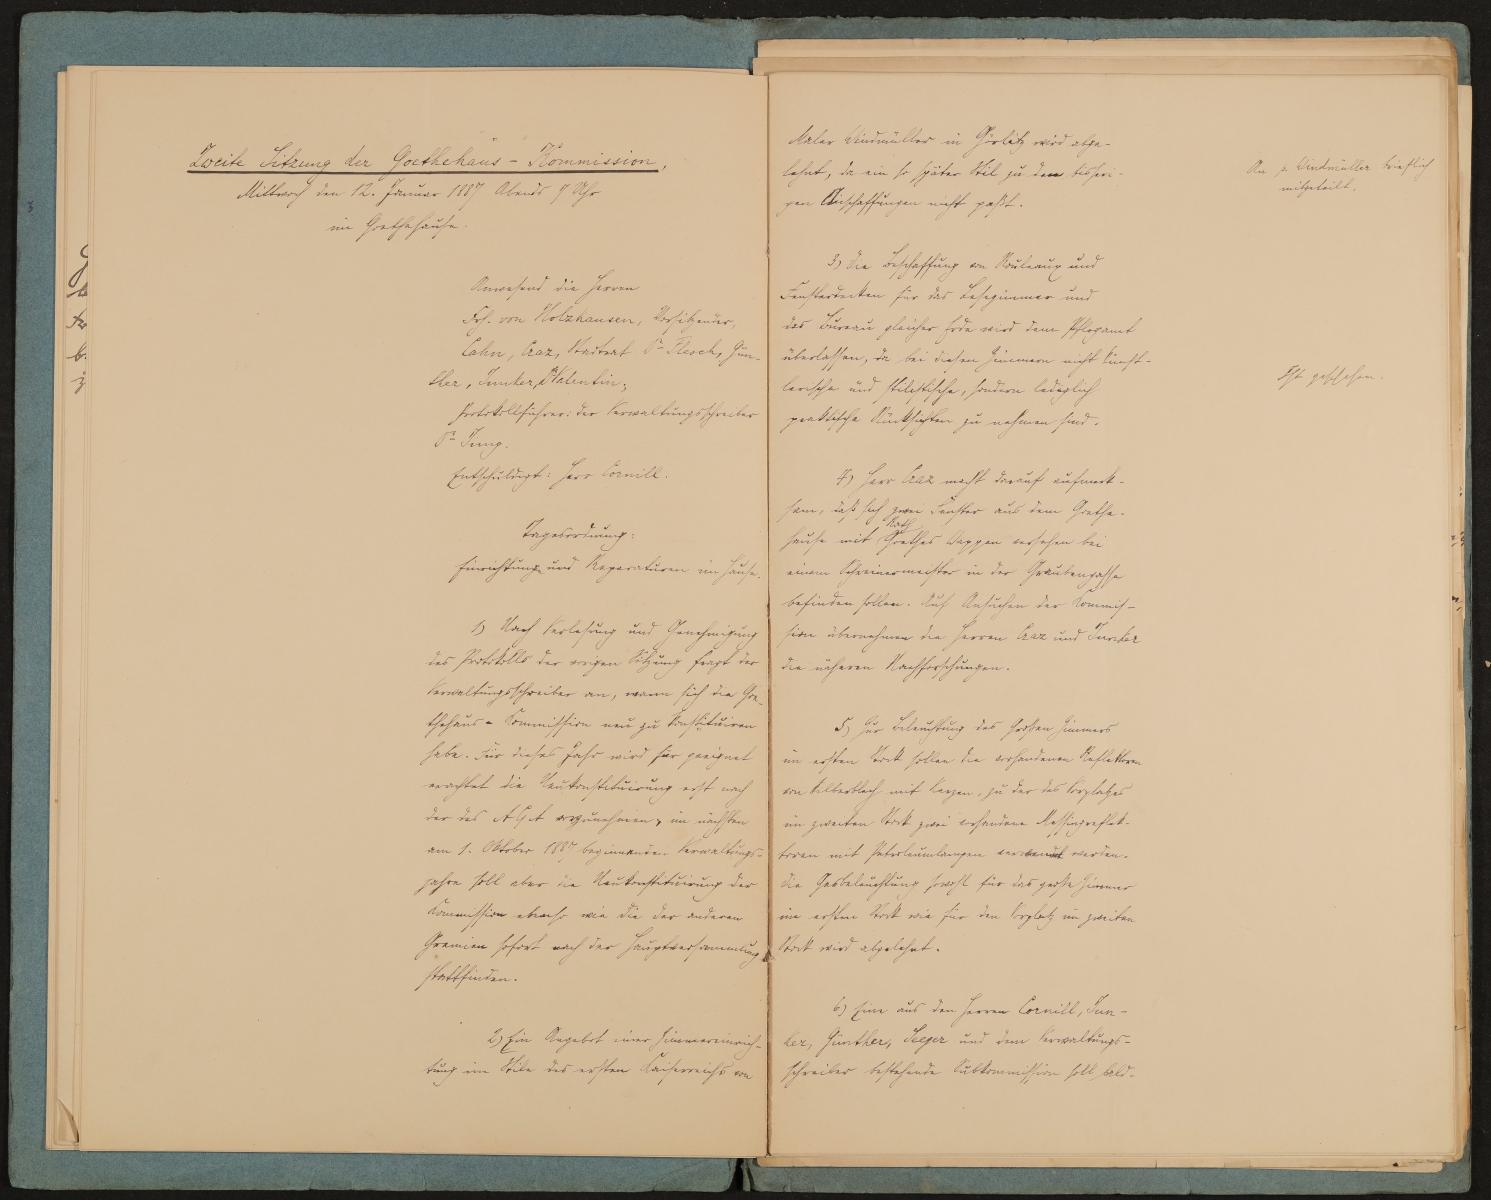 Zweite Sitzung der Goethehaus-Kommission,
Mittwoch den 12. Januar 1887 Abends 7 Uhr
im Goethehause.
Anwesend die Herren
Frh. von Holzhausen, Vorsitzender,
Cahn, Craz, Stadtrat Dr Flesch, Gün-
ther, Junker, Dr Valentin;
Protokollführer: der Verwaltungsschreiber
Dr Jung.
Entschuldigt: Herr Cornill.
Tagesordnung:
Einrichtung und Reparaturen im Hause.
1) Nach Verlesung und Genehmigung
des Protokolls der vorigen Sitzung fragt der
Verwaltungsschreiber an, wann sich die Goe-
thehaus-Kommission neu zu konstituiren
habe. Für dieses Jahr wird für geeignet
erachtet die Neukonstituirung erst nach
der des AGA vorzunehmen, im nächsten
am 1. Oktober 1887 beginnenden Verwaltungs-
jahre soll aber die Neukonstituirung der
Kommission ebenso wie die der anderen
Gremien sofort nach der Hauptversammlung
stattfinden.
2) Ein Angebot einer Zimmereinrich-
tung im Stile des ersten Kaiserreichs von
Maler Windmüller in Görlitz wird abge-
lehnt, da ein so später Stil zu den bisheri-
gen Anschaffungen nicht paßt.
An p. Windmüller brieflich
mitgeteilt.
3) Die Beschaffung von Rouleaux und
Fensterdecken für das Lesezimmer und
das Bureau gleicher Erde wird dem Pflegamt
überlassen, da bei diesen Zimmern nicht künst-
lerische und stilistische, sondern lediglich
praktische Rücksichten zu nehmen sind.
Ist geschehen.
4) Herr Craz macht darauf aufmerk-
sam, daß sich zwei Fenster aus dem Goethe-
hause mit Rath Goethes Wappen versehen bei
einem Schreinermeister in der Graubengasse
befinden sollen. Auf Ansuchen der Kommis-
sion übernehmen die Herren Craz und Junker
die näheren Nachforschungen.
5) Zur Beleuchtung des großen Zimmers
im ersten Stock sollen die vorhandenen Reflektoren
von Silberblech mit Kerzen, zu der des Vorplatzes
im zweiten Stock zwei vorhandene Messingreflek-
toren mit Petroleumlampen verwendet werden.
Die Gasbeleuchtung sowohl für das große Zimmer
im ersten Stock wie für den Vorplatz im zweiten
Stock wird abgelehnt.
6) Eine aus den Herren Cornill, Jun-
ker, Günther, Seeger und dem Verwaltungs-
schreiber bestehende Subkommission soll bald-